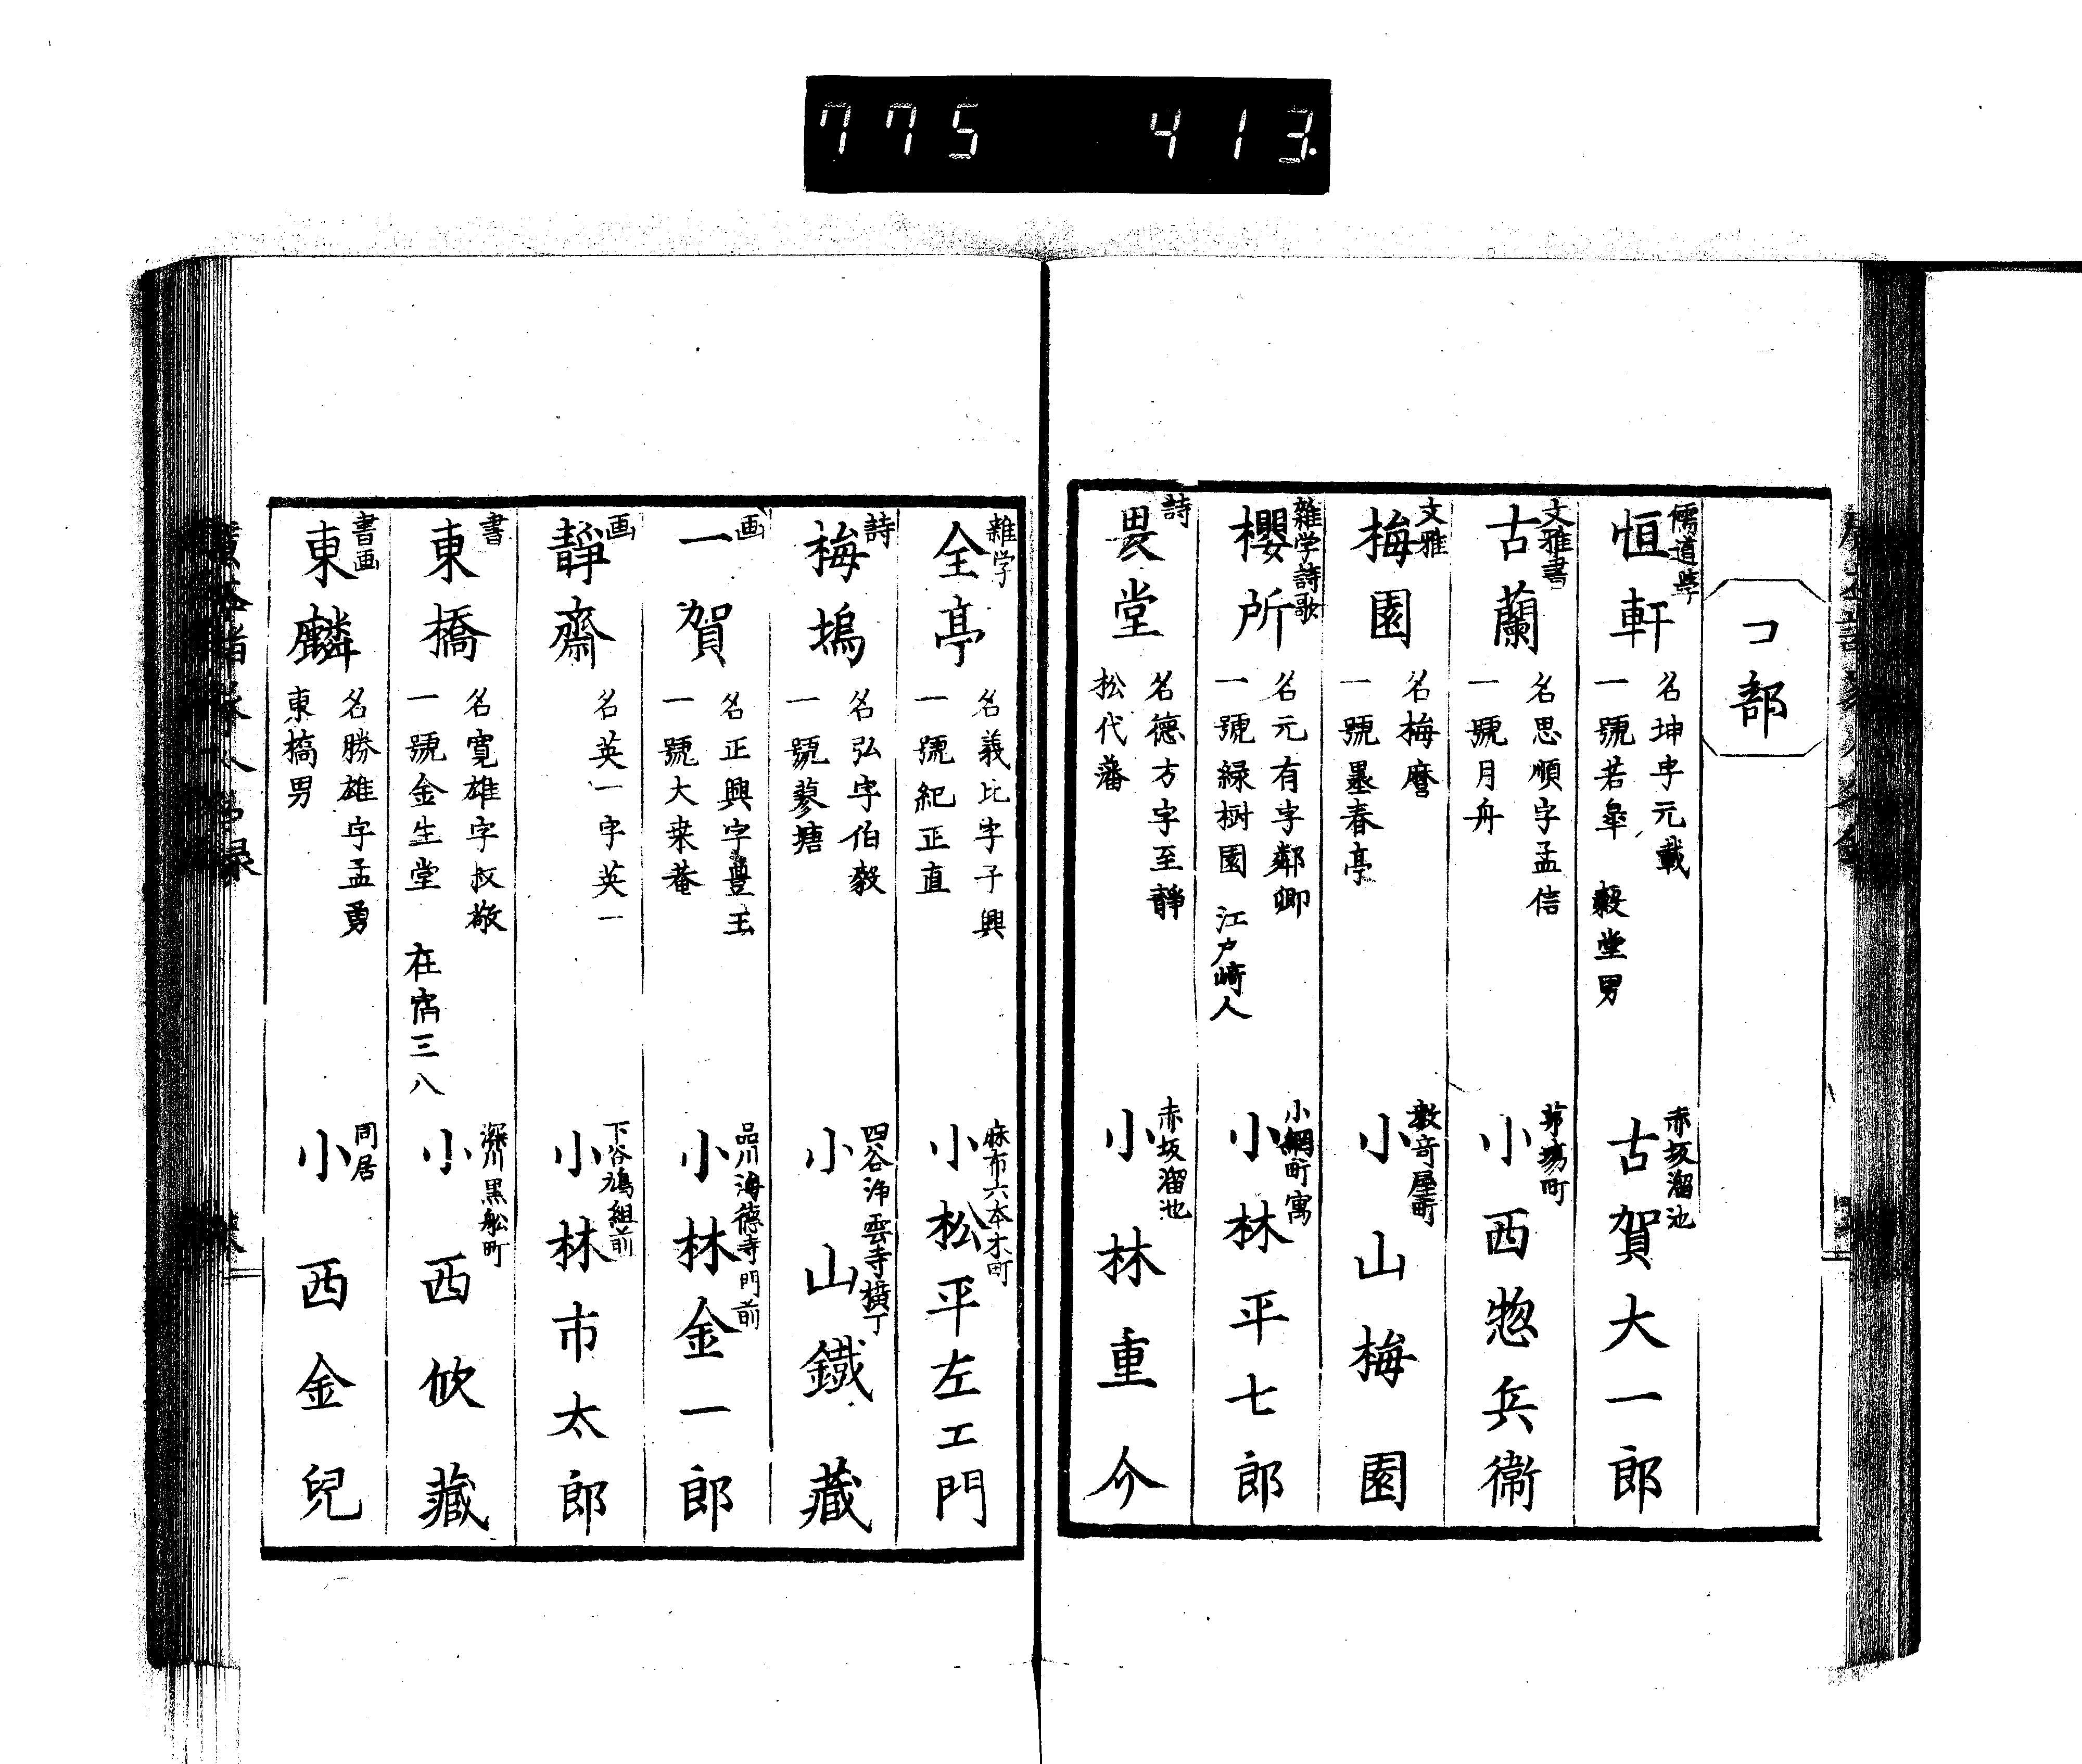 775 413.
コ部
儒道學
恒軒
名坤字元載
一號若皐 穀堂男
赤坂溜池
古賀大一郎
文雅書
古蘭
名思順字孟信
一號月舟
茅場町
小西惣兵衞
文雅
梅園
名梅麿
一號墨春亭
數寄屋町
小山梅園
雜学詩歌
櫻所
名元有字鄰卿
一號緑樹園 江戸崎人
小網町寓
小林平七郎
詩
畏堂
名德方字至靜
松代藩
赤坂溜池
小林重介
雜学
全亭
名義比字子興
一號紀正直
麻布六本木町
小松平左エ門
詩
梅塢
名弘字伯毅
一號蓼塘
四谷浄雲寺横丁
小山鐵藏
画
一賀
名正興字豊玉
一號大来菴
品川海德寺門前
小林金一郎
画
靜齋
名英一字英一
下谷鳩組前
小林市太郎
書
東橋
名寛雄字叔敬
一號金生堂 在宿三八
深川黒舩町
小西攸藏
書画
東麟
名勝雄字孟勇
東橋男
同居
小西金兒